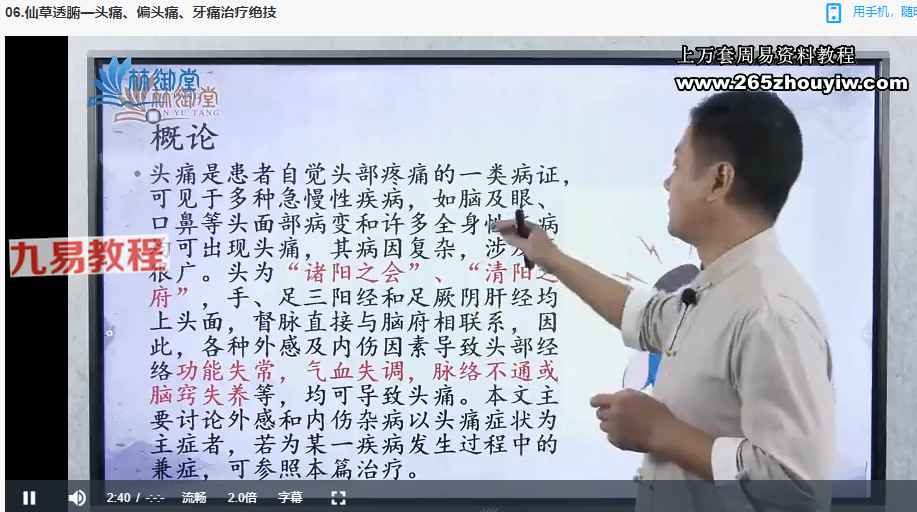 06.仙草透腑—头痛、偏头痛、牙痛治疗绝技
用手机，随时
上万套周易资料教程
www.265zhouyiw.com
林御堂
林御堂
LIN YU TANG
概论
头痛是患者自觉头部疼痛的一类病证，
可见于多种急慢性疾病，如脑及眼、
口鼻等头面部病变和许多全身性 病
可出现头痛，其病因复杂，涉及
很广。头为“诸阳之会”、“清阳之
府”，手、足三阳经和足厥阴肝经均
上头面，督脉直接与脑府相联系，因
此，各种外感及内伤因素导致头部经
络功能失常，气血失调，脉络不通或
脑窍失养等，均可导致头痛。本文主
要讨论外感和内伤杂病以头痛症状为
主症者，若为某一疾病发生过程中的
兼症，可参照本篇治疗。
九易教程
2:40 / -:-:- 流畅 2.0倍 字幕